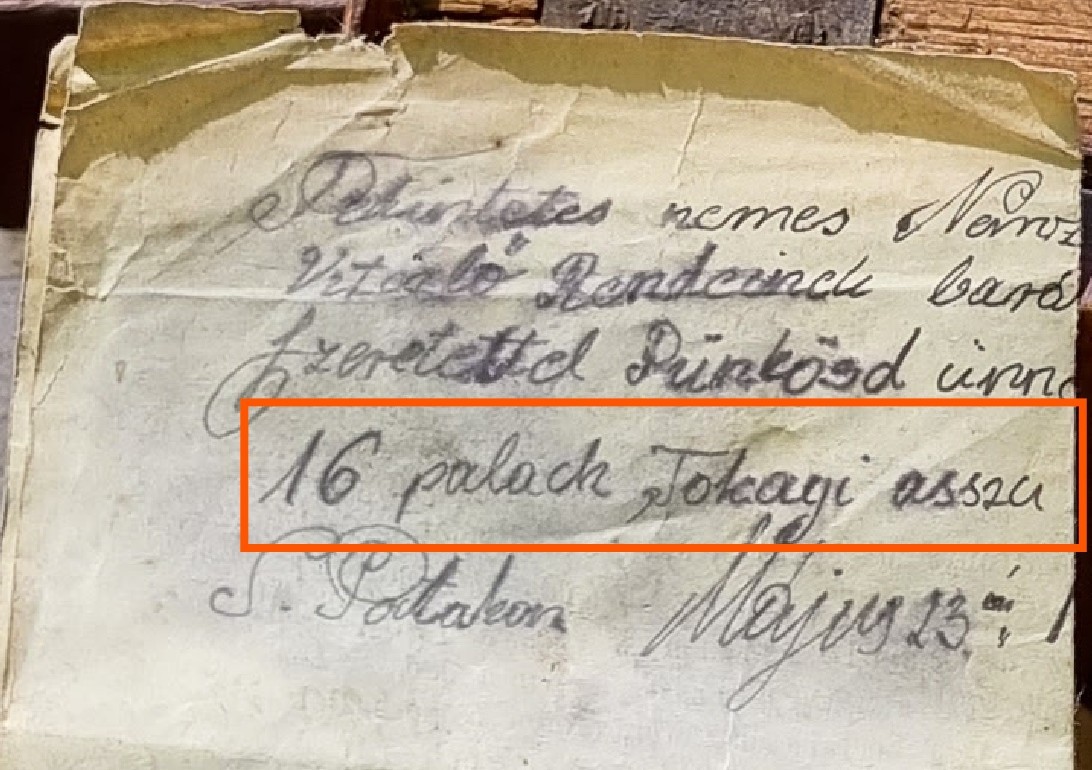 Tekintetes nemes Nároz
Vitézlő Rendeinek bará
szeretettel Pünkösd ünne
16 palack Tokagi asszu
S. Patakon Május 23.